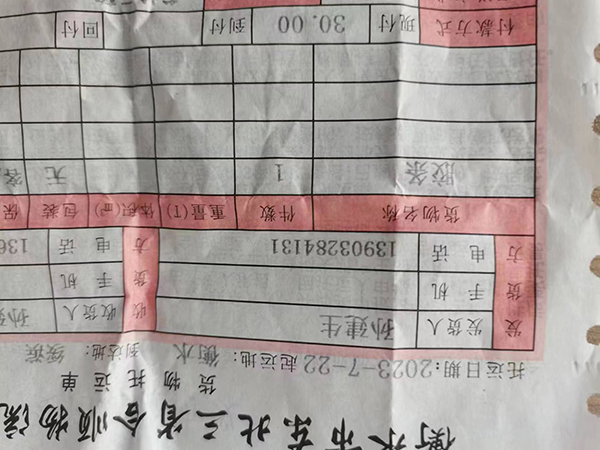 衡水市东北三省合顺物流
货物托运单
托运日期:2023-7-22 起运地: 衡水 到达地:
发货方 发货人 孙建生 收货方 收货人 孙
手机 手机
电话 13903284131 电话 136
货物名称 件数 重量(T) 体积(m³) 包装 保
胶条 1 无
付款方式 现付 30.00 到付 回付